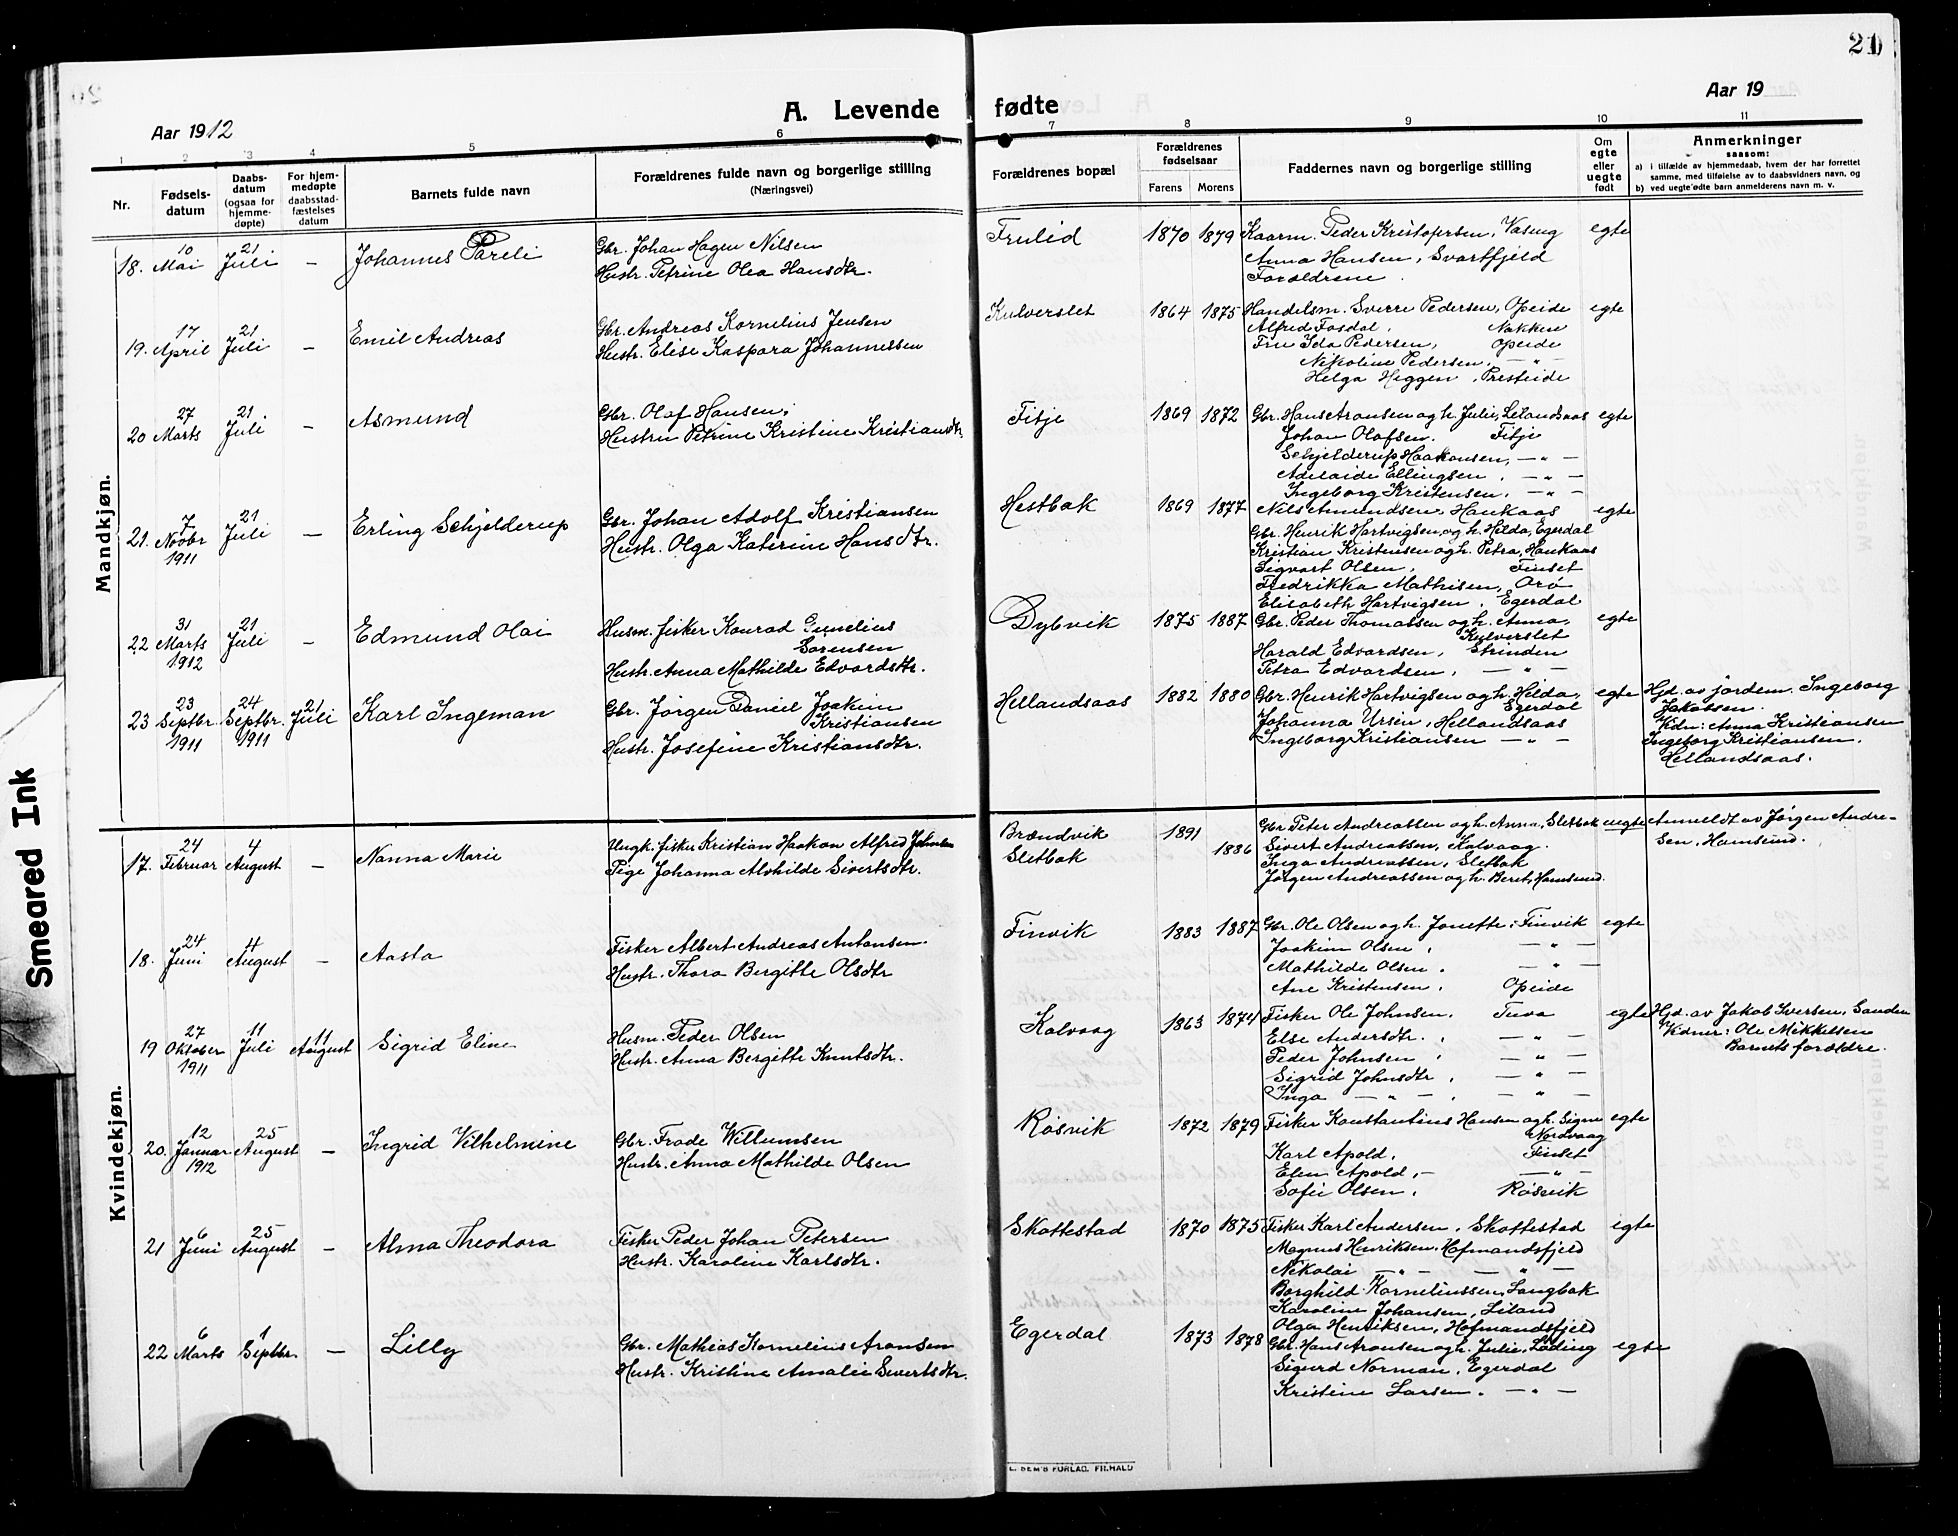 21
A. Levende fødte
Aar 1912
Aar 19
1 2 3 4 5 6 7 8 9 10 11
Nr.
Fødsels-
datum
Daabs-
datum
(ogsaa for
hjemme-
døpte)
For hjem-
medøpte
daabsstad-
fæstelses
datum
Barnets fulde navn
Forældrenes fulde navn og borgerlige stilling
(Næringsvei)
Forældrenes bopæl
Forældrenes
fødselsaar
Farens Morens
Faddernes navn og borgerlige stilling
Om
egte
eller
uegte
født
Anmerkninger
saasom:
a) i tilfælde av hjemmedaab, hvem der har forrettet
samme, med tilføielse av to daabsvidners navn, og
b) ved uegte fødte barn anmelderens navn m. v.
Mandkjøn.
18. 10 Mai 21 Juli — Johannes Pareli
Gbr. Johan Hagen Nilsen
Hustr. Petrine Olea Hansdtr.
Frulid 1870 1879
Kaarm. Peder Kristofersen, Vaseng egte
Anna Hansen, Svartfjeld
Forældrene
19. 17 April 21 Juli — Emil Andreas
Gbr. Andreas Kornelius Jensen
Hustr. Elise Kaspara Johannessen
Kulverslet 1864 1875
Handelsm. Sverre Pedersen, Opeide egte
Alfred Fosdal, Nakken
Fru Ida Pedersen, Opeide
Nikoline Pedersen, — " —
Helga Heggen, Presteide
20 27 Marts 21 Juli — Asmund
Gbr. Olaf Hansen,
Hustru Petrine Kristine Kristiansdtr.
Fitje 1869 1872
Gbr. Hans Aronsen og h. Julie, Lelandsaas egte
Johan Olafsen. Fitje
Schjelderup Haakonsen, — " —
Adelaide Ellingsen, — " —
Ingeborg Kristensen. — " —
21. 7 Novbr 1911 21 Juli — Erling Schjelderup
Gbr. Johan Adolf Kristiansen
Hustr. Olga Katerine Hansdtr.
Hestbak 1869 1877
Nils Amundsen, Haukaas egte
Gbr. Henrik Hartvigsen og h. Hilda, Egerdal
Kristian Kristensen og h. Petra, Haukaas
Sigvart Olsen, Finset
Fredrikka Mathisen, Orø
Elisabeth Hartvigsen, Egerdal
22 31 Marts 1912 21 Juli — Edmund Olai
Husm. fisker Konrad Cornelius
Sørensen
Hustr. Anna Mathilde Edvardsdtr.
Dybvik 1875 1887
Gbr. Peder Thomassen og h. Anna, egte
Kulverslet
Harald Edvardsen, Strinden
Petra Edvardsen, — " —
23 23 Septbr. 1911 24 Septbr. 1911 21 Juli Karl Ingeman
Gbr. Jørgen Daniel Joakim
Kristiansen
Hustr. Josefine Kristiansdtr.
Hellandsaas 1882 1880
Gbr. Henrik Hartvigsen og h. Hilda, egte
Egerdal
Johanna Ursin, Hellandsaas
Ingeborg Kristiansen — " —
Hjd. av jordem. Ingeborg
Jakobsen.
Vidn: Anna Kristiansen
Ingeborg Kristiansen,
Hellandsaas.
Kvindekjøn.
17. 24 Februar 4 August — Nanna Marie
Ungk. fisker Kristian Haakon Alfred Johnsen
Pige Johanna Alvhilde Sivertsdtr.
Brændvik 1891
Sletbak 1886
Gbr. Peter Andreassen og h. Anna, Sletbak uegte
Sivert Andreassen, Kalvaag.
Inga Andreassen, Sletbak
Jørgen Andreassen og h. Beret, Hamsund.
Anmeldt av Jørgen Andre-
sen, Hamsund.
18. 24 Juni 4 August — Aasta
Fisker Albert Andreas Antonsen
Hustr. Thora Bergitte Olsdtr
Finvik 1883 1887
Gbr. Ole Olsen og h. Jonette, Finvik egte
Joakim Olsen, — " —
Mathilde Olsen. — " —
Ane Kristensen, Opeide
19 27 Oktober 1911 11 Juli 11 August Sigrid Eline
Husm. Peder Olsen
Hustr. Anna Bergitte Knutsdtr.
Kalvaag 1863 1874
Fisker Ole Johnsen, Tuva egte
Else Andersdtr., — " —
Peder Johnsen, — " —
Sigrid Johnsdtr, — " —
Inga — " —, — " —
Hjd. av Jakob Iversen, Sanden
Vidner: Ole Mikkelsen
Barnets forældre.
20. 12 Januar 1912 25 August — Ingrid Vilhelmine
Gbr. Frode Willumsen
Hustr. Anna Mathilde Olsen
Røsvik 1872 1879
Fisker Konstantinus Hansen og h. Signe egte
Nordvaag
Karl Apold, Finset
Elen Apold, — " —
Sofie Olsen, Røsvik
21 6 Juni 25 August — Alma Theodora
Fisker Peder Johan Petersen
Hustr. Karoline Karlsdtr.
Skottestad 1870 1875
Fisker Karl Andersen, Skottestad egte
Magnus Henriksen, Hofmandsfjeld
Nikolai — " — — " —
Borghild Korneliussen, Langbak
Karoline Johansen, Liland
Olga Henriksen, Hofmandsfjeld
22 6 Marts 1 Septbr. — Lilly
Gbr. Mathias Kornelius Aronsen
Hustr. Kristine Amalie Sivertsdtr.
Egerdal 1873 1878
Gbr. Hans Aronsen og h. Julie, Løding egte
Sigurd Norman, Egerdal
Kristine Larsen. — " —
Smeared Ink
E. SEM'S FORLAG, FR.HALD